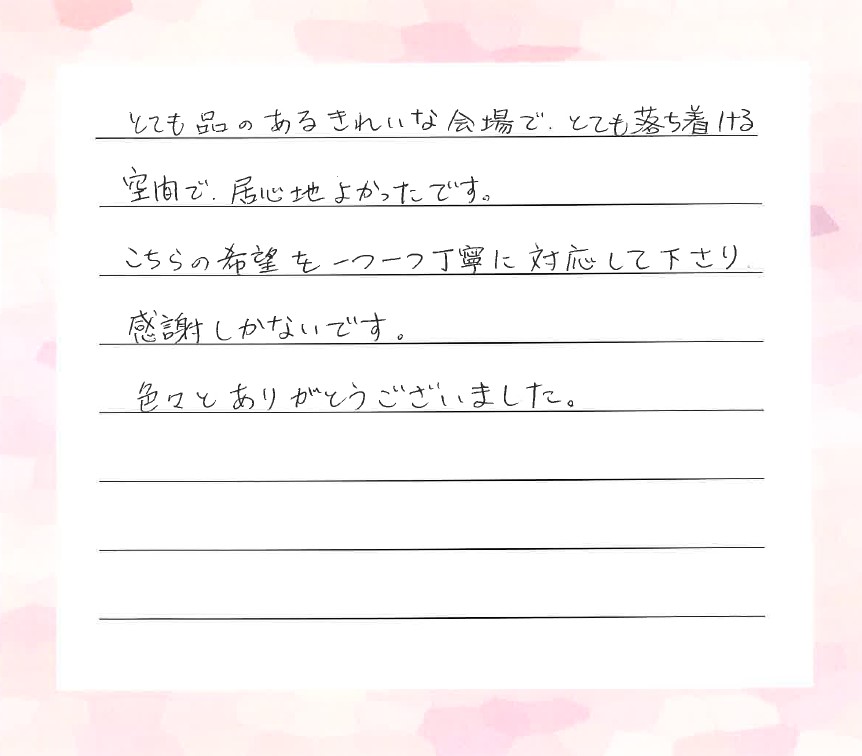 とても品のあるきれいな会場で、とても落ち着ける
空間で、居心地よかったです。
こちらの希望を一つ一つ丁寧に対応して下さり
感謝しかないです。
色々とありがとうございました。